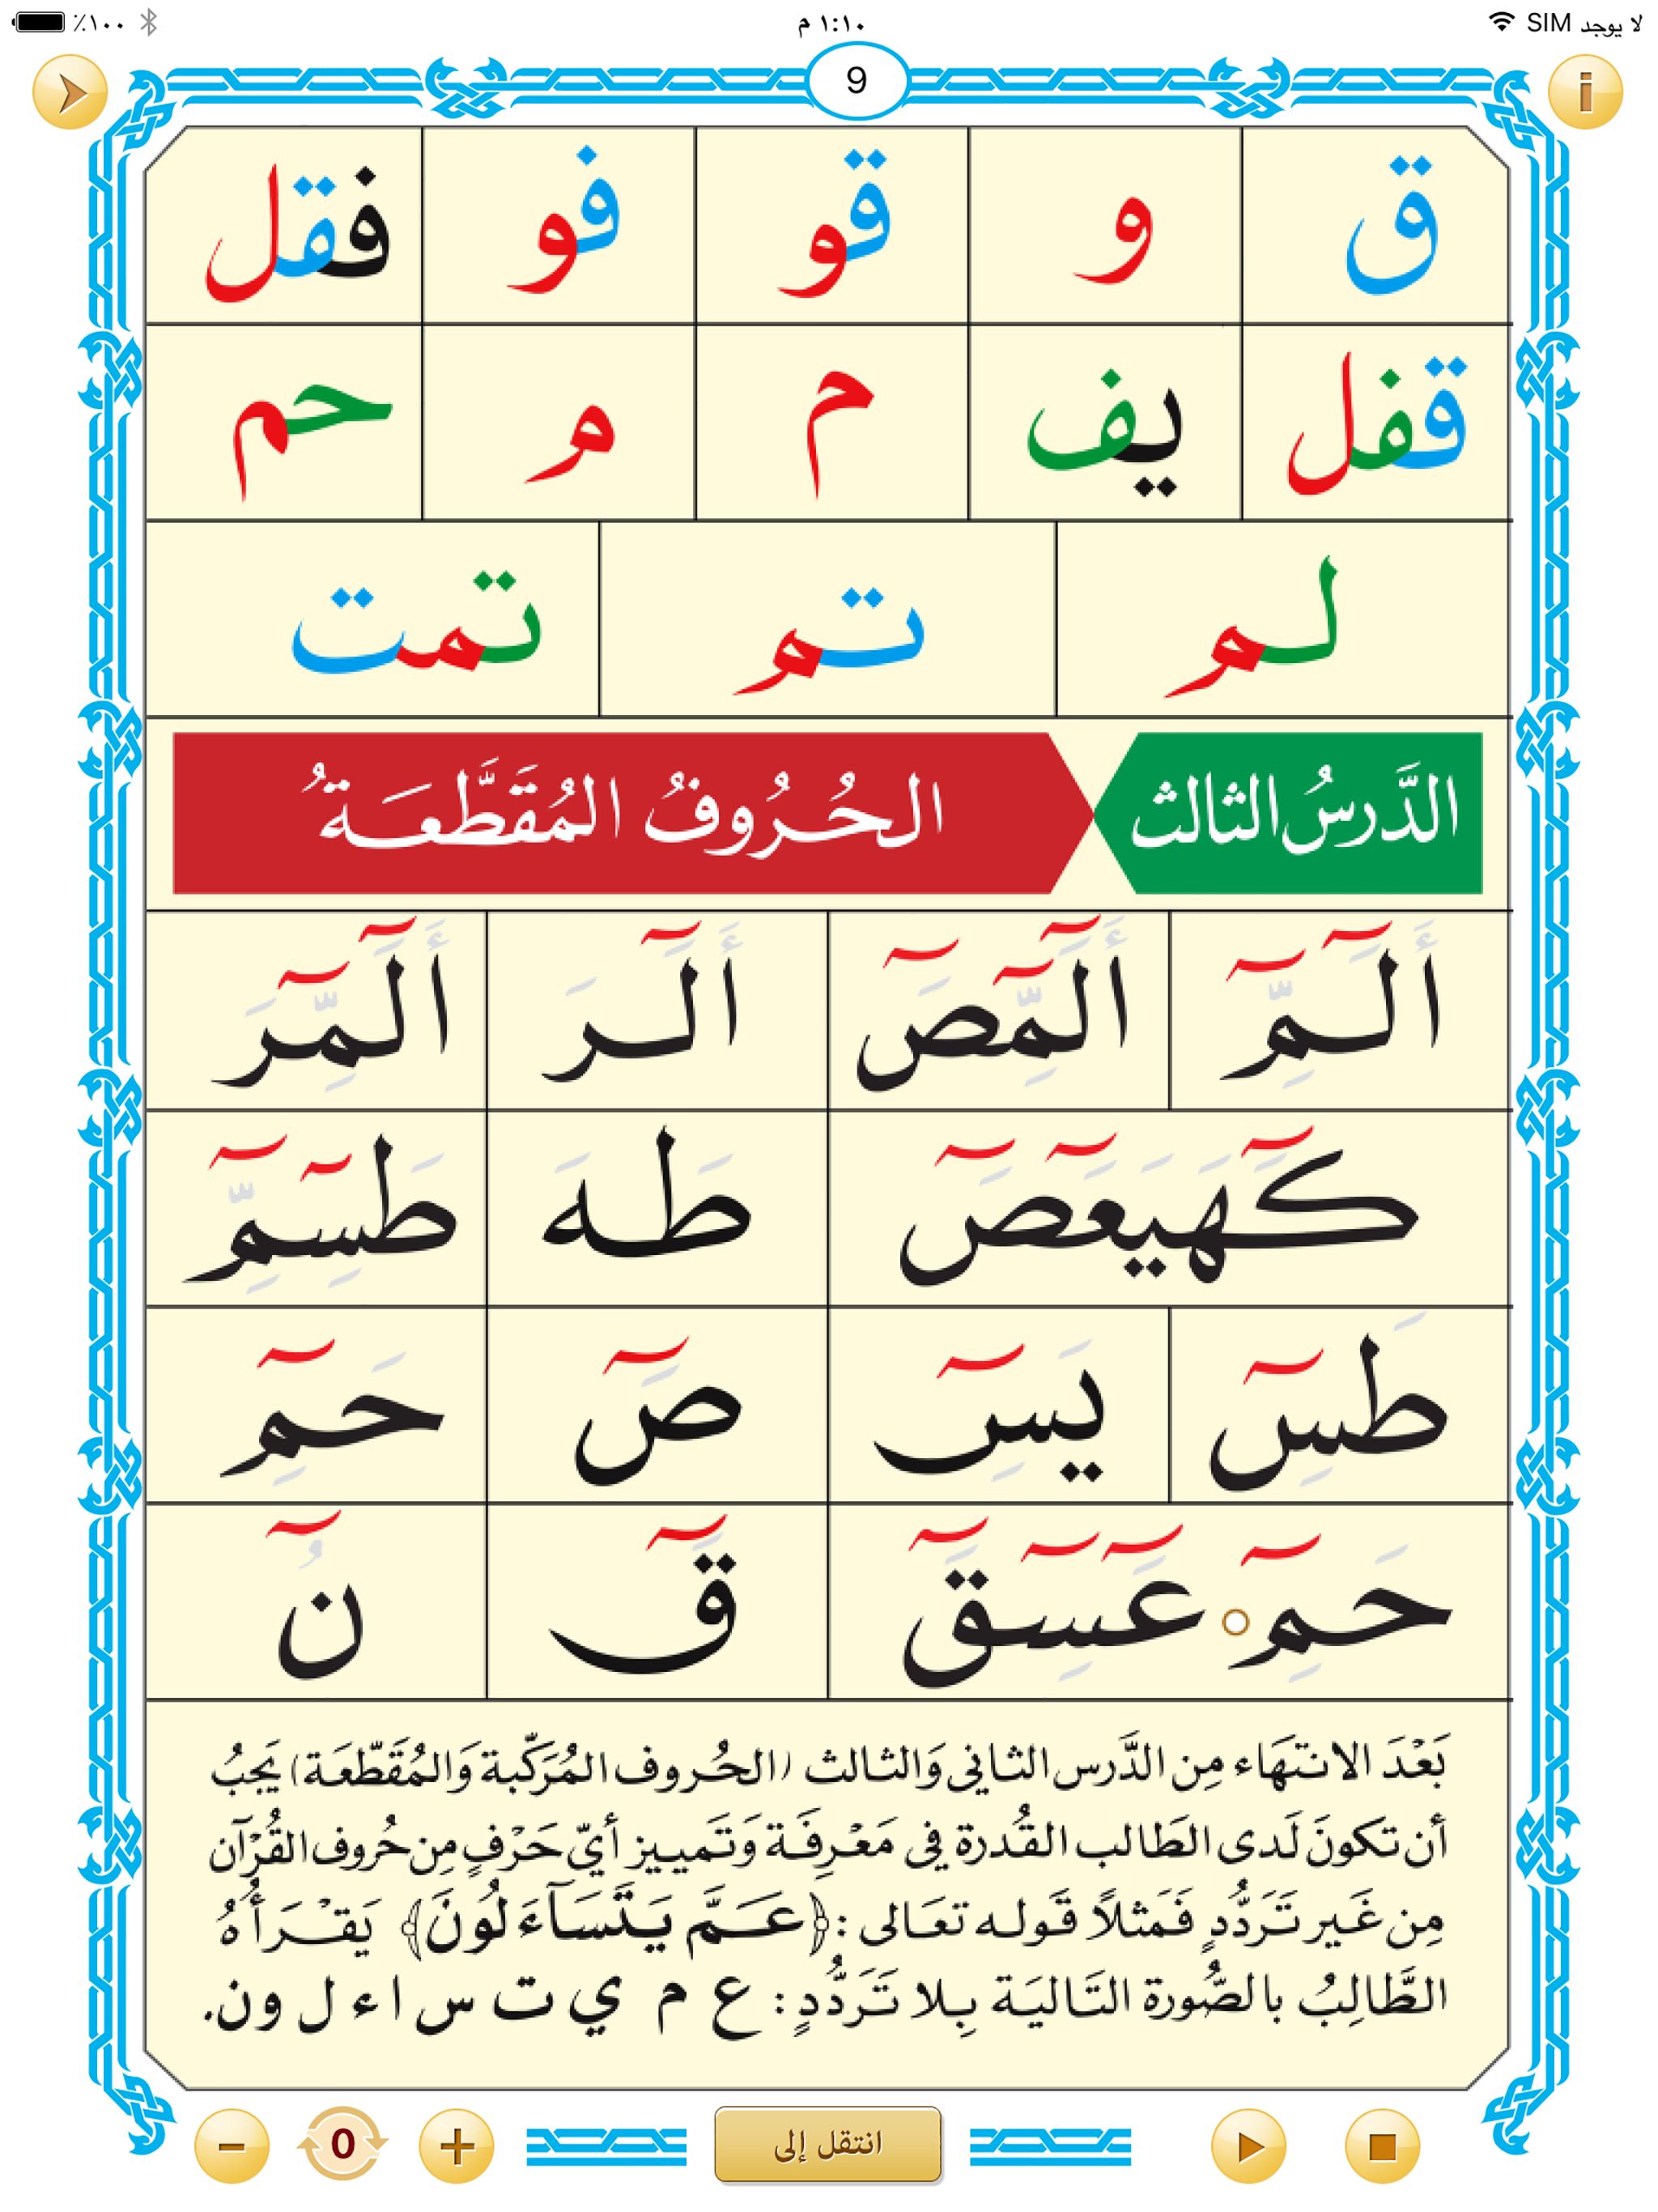 لا يوجد SIM ١:١٠ م ١٠٠٪
9
ق و قو فو فقل
قفل يف م م حم
لم تم تمت
الدَّرسُ الثالث الحُرُوفُ المُقَطَّعَةُ
أَلَٓمِّٓ أَلَٓمِّٓصَٓ أَلَٓرَ أَلَٓمِّٓرَ
كَٓهَيَعَٓصَٓ طَهَ طَسِٓمِّٓ
طَسِٓ يَسِٓ صَٓ حَمِٓ
حَمِٓ عَٓسِٓقَٓ قَٓ نُٓ
بَعْدَ الانتهَاء مِن الدَّرس الثاني وَالثالث (الحُروف المُرَكّبة وَالمُقَطّعَة) يَجبُ
أن تكونَ لَدى الطَالب القُدرة في مَعْرِفَة وَتَمييز أيّ حَرْفٍ مِن حُروف القُرْآن
مِن غَير تَرَدُّدٍ فَمَثلاً قَوله تعَالى : ﴿عَمَّ يَتَسَآءَلُونَ﴾ يَقْرَأُهُ
الطَّالِبُ بالصُّورة التَاليَة بِلا تَرَدُّدٍ : ع م ي ت س ا ء ل و ن.
انتقل إلى 0